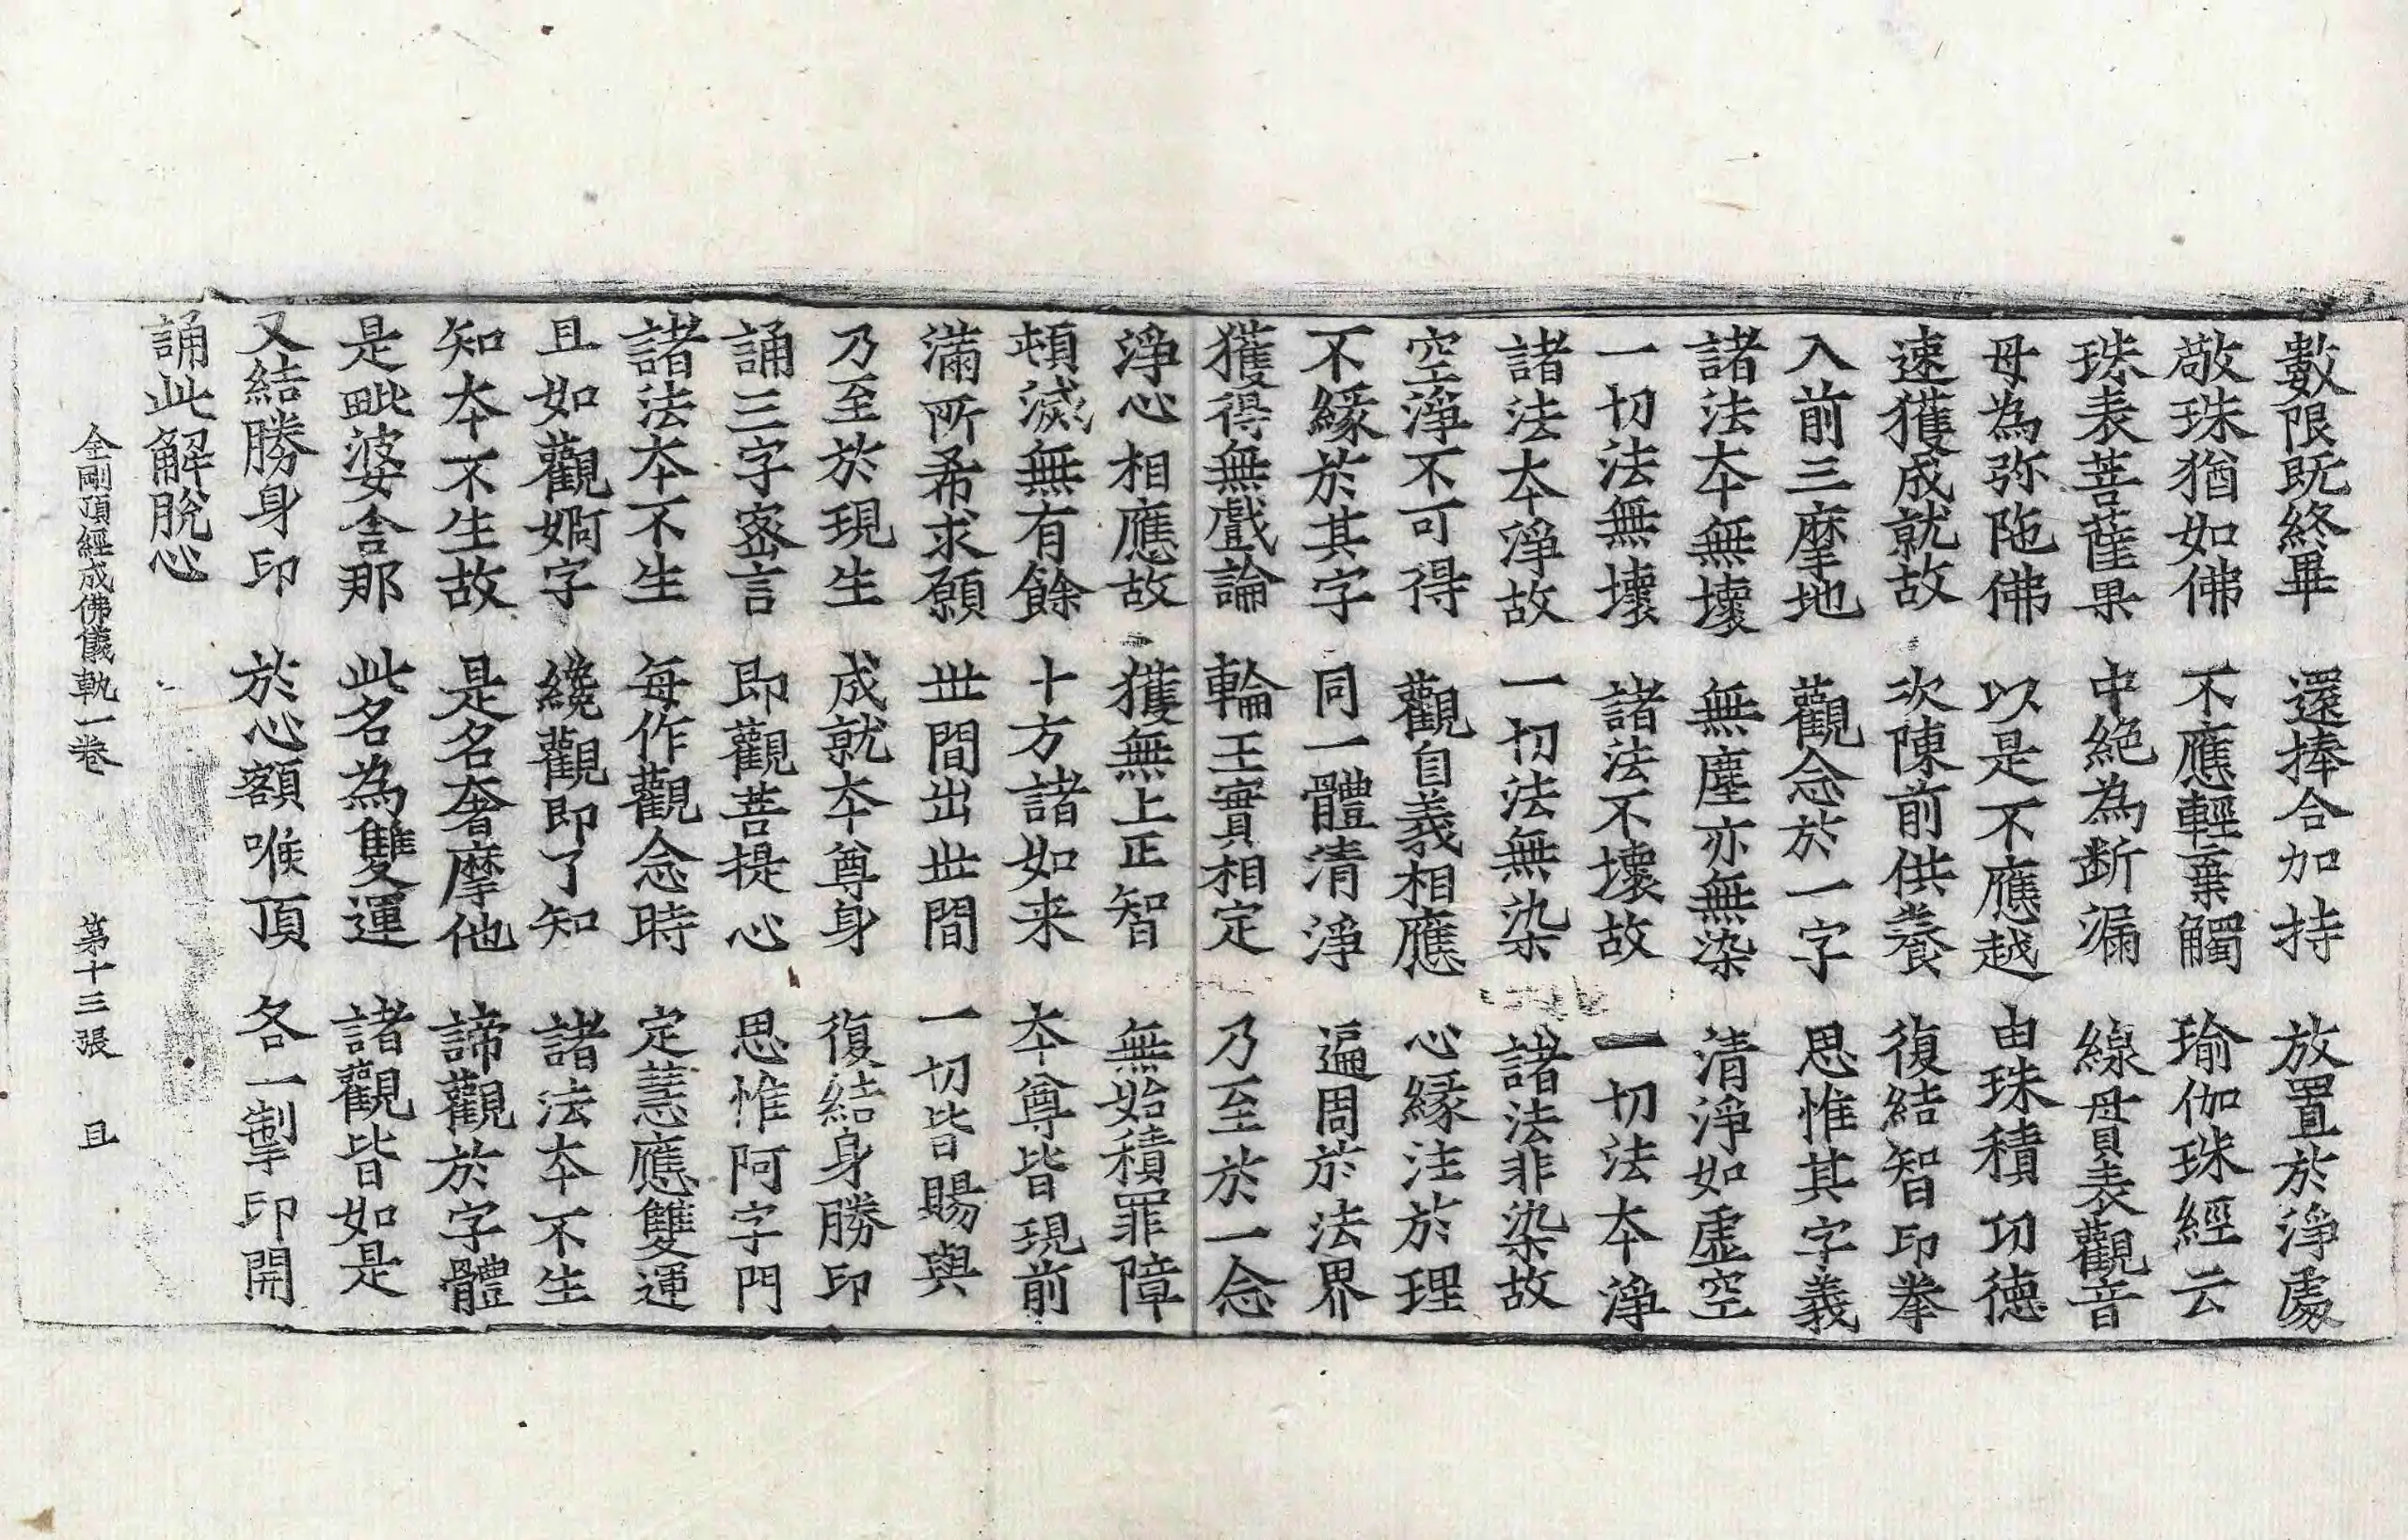 數限既終畢　還捧合加持　放置於淨處
敬珠猶如佛　不應輕棄觸　瑜伽珠經云
珠表菩薩果　中絶為斷漏　線毋貫表觀音
母為弥陁佛　以是不應越　由珠積功德
速獲成就故　次陳前供養　復結智印拳
入前三摩地　觀念於一字　思惟其字義
諸法夲無壞　無塵亦無染　清淨如虛空
一切法無壞　諸法不壞故　一切法夲淨
諸法夲淨故　一切法無染　諸法非染故
空淨不可得　觀自義相應　心縁注於理
不縁於其字　同一體清淨　遍周於法界
獲得無戲論　輪王實相定　乃至於一念
淨心相應故　獲無上正智　無始積罪障
頓滅無有餘　十方諸如来　夲尊皆現前
滿所希求願　世間出世間　一切皆賜與
乃至於現生　成就夲尊身　復結身勝印
誦三字密言　即觀菩提心　思惟阿字門
諸法夲不生　每作觀念時　定慧應雙運
且如觀婀字　纔觀即了知　諸法夲不生
知夲不生故　是名奢摩他　諦觀於字體
是毗婆舍那　此名為雙運　諸觀皆如是
又結勝身印　於心額喉頂　各一掣印開
誦此解脫心
金剛頂經成佛儀軌一卷　第十三張　且